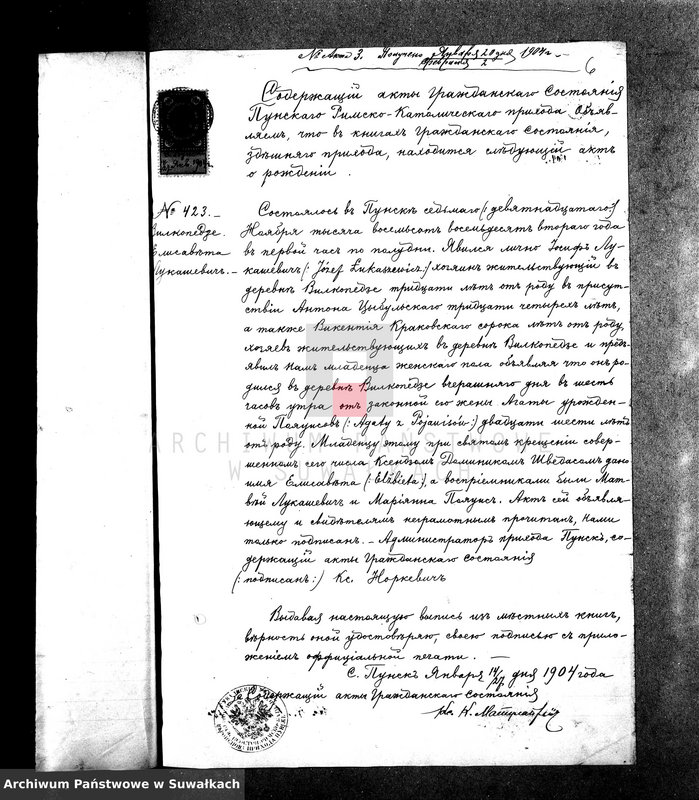 № Акта 3. Получено Января 20 дня 1904 г.
Февраля 2
6
Содержащій акты Гражданскаго Состоянія
Пунскаго Римско-Католическаго прихода Объяв-
ляемъ, что в книгахъ Гражданскаго состоянія,
здѣшняго прихода, находится слѣдующій актъ
о рожденіи .
№ 423.
Вилкопедзе.
Елисавѣта
Лукашевичъ.
Состоялось въ Пунскѣ седьмаго (: девятнадцатаго:)
Ноября тысяча восемьсотъ восемьдесятъ втораго года
въ первой часъ по полудни. Явился лично Іосифъ Лу-
кашевичъ (: Józef Łukaszewicz:) хозяинъ жительствующій въ
деревнѣ Вилкопедзе тридцати лѣтъ отъ роду въ присут-
ствіи Антона Цыбульскаго тридцати четырехъ лѣтъ,
а также Викентія Краковскаго сорока лѣтъ отъ роду,
хозяевъ жительствующихъ въ деревнѣ Вилкопедзе и предъ-
явилъ намъ младенца женскаго пола объявляя что онъ ро-
дился въ деревнѣ Вилкопедзе вчерашняго дня въ шесть
часовъ утра отъ законной его жены Агаты урожден-
ной Пояунсовъ (: Agaty z Pojaunisów :) двадцати шести лѣтъ
отъ роду. Младенцу этому при святомъ крещеніи совер-
шенномъ сего числа Ксендзомъ Доминикомъ Шведасомъ дано
имя Елисавѣта (: Elżbieta :), а воспріемниками были Мат-
вѣй Лукашевичъ и Маріянна Пояунсъ. Актъ сей объявля-
ющему и свидѣтелямъ неграмотнымъ прочитанъ, нами
только подписанъ. – Администраторъ прихода Пунскъ, со-
держащій акты Гражданскаго Состоянія
(: подписанъ :) Кс. Норкевичъ
Выдавая настоящую выпись изъ мѣстныхъ книгъ,
вѣрность оной удостовѣряю, своею подписью съ прило-
женіемъ оффиціальной печати.
С. Пунскъ Января 14/27 дня 1904 года
Содержащій акты Гражданскаго Состоянія
ARCHIWUM PAŃSTWOWE
W SUWAŁKACH
Archiwum Państwowe w Suwałkach